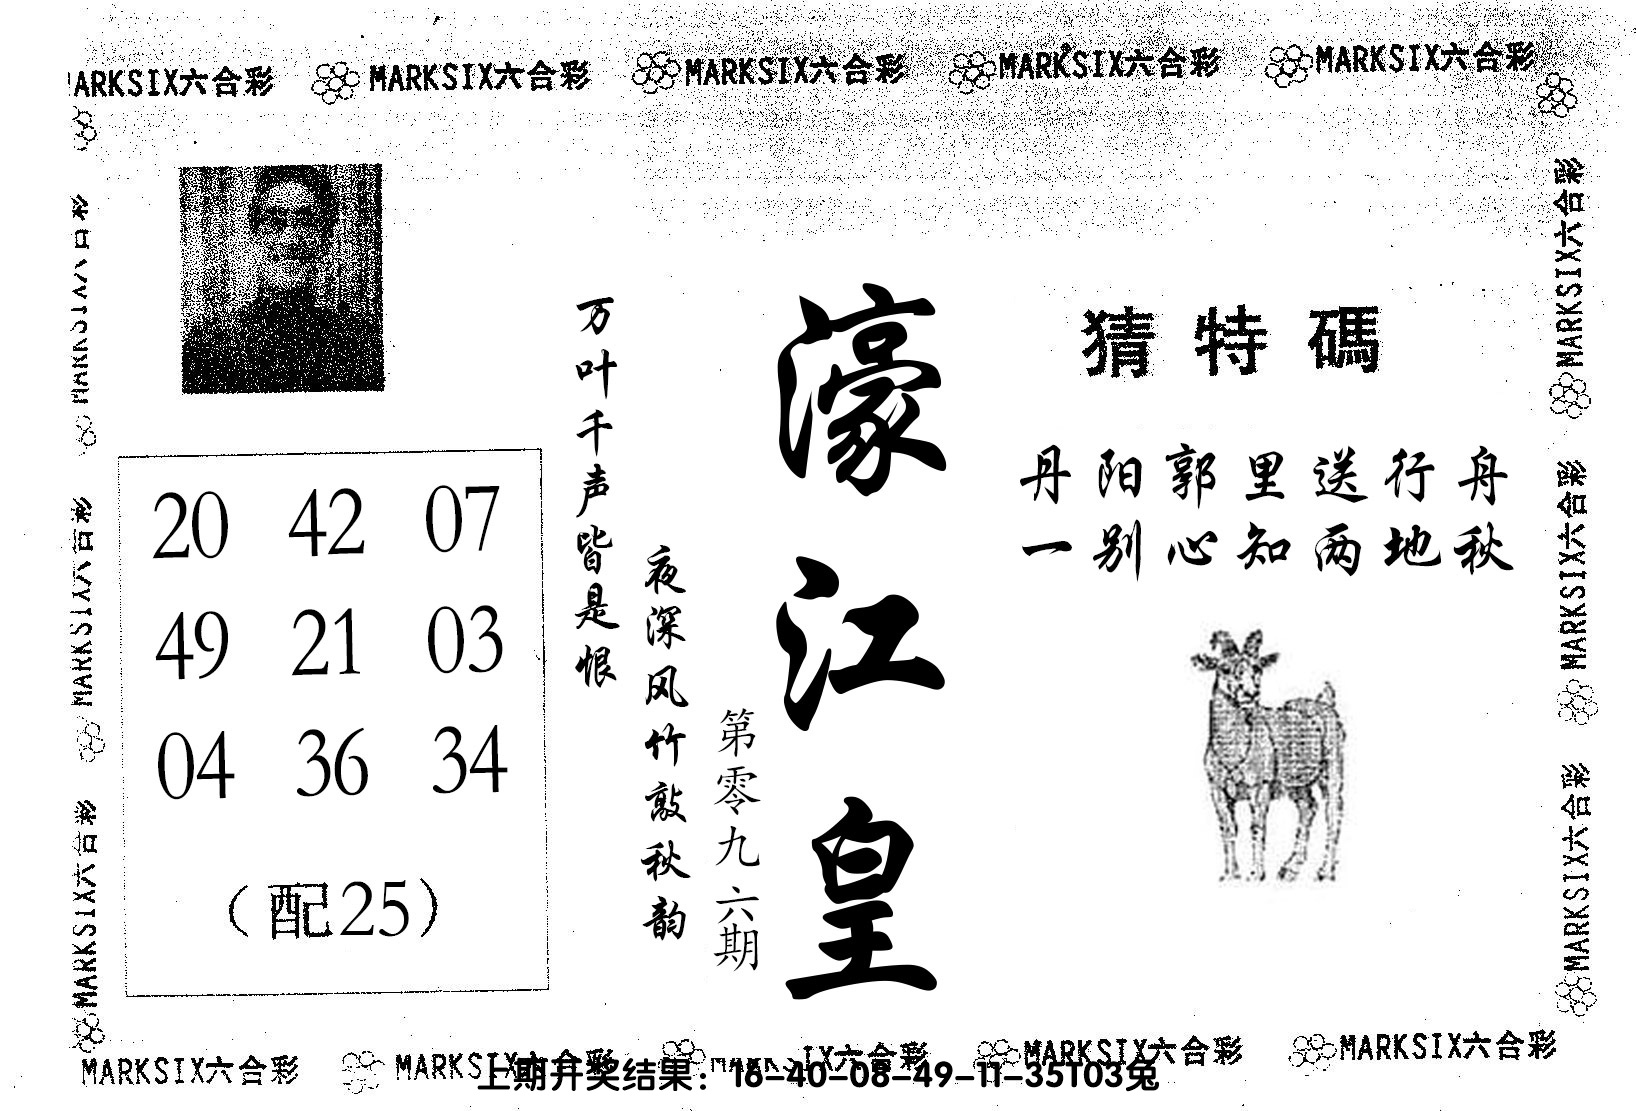 MARKSIX六合彩 MARKSIX六合彩 MARKSIX六合彩 MARKSIX六合彩
ARKSIX六合彩
MARKSIX六合彩
MARKSIX六合彩
MARKSIX六合彩
MARKSIX六合彩
MARKSIX六合彩
MARKSIX六合彩
猜特碼
丹阳郭里送行舟
一别心知两地秋
濠江皇
第零九六期
夜深风竹敲秋韵
万叶千声皆是恨
20 42 07
49 21 03
04 36 34
（配25）
MARKSIX六合彩 MARKSIX六合彩 IX六合彩 MARKSIX六合彩 MARKSIX六合彩
上期开奖结果：16-40-08-49-11-35T03兔